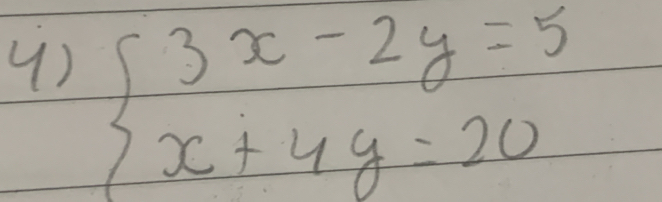 4) { 3x - 2y = 5
x + 4y = 20